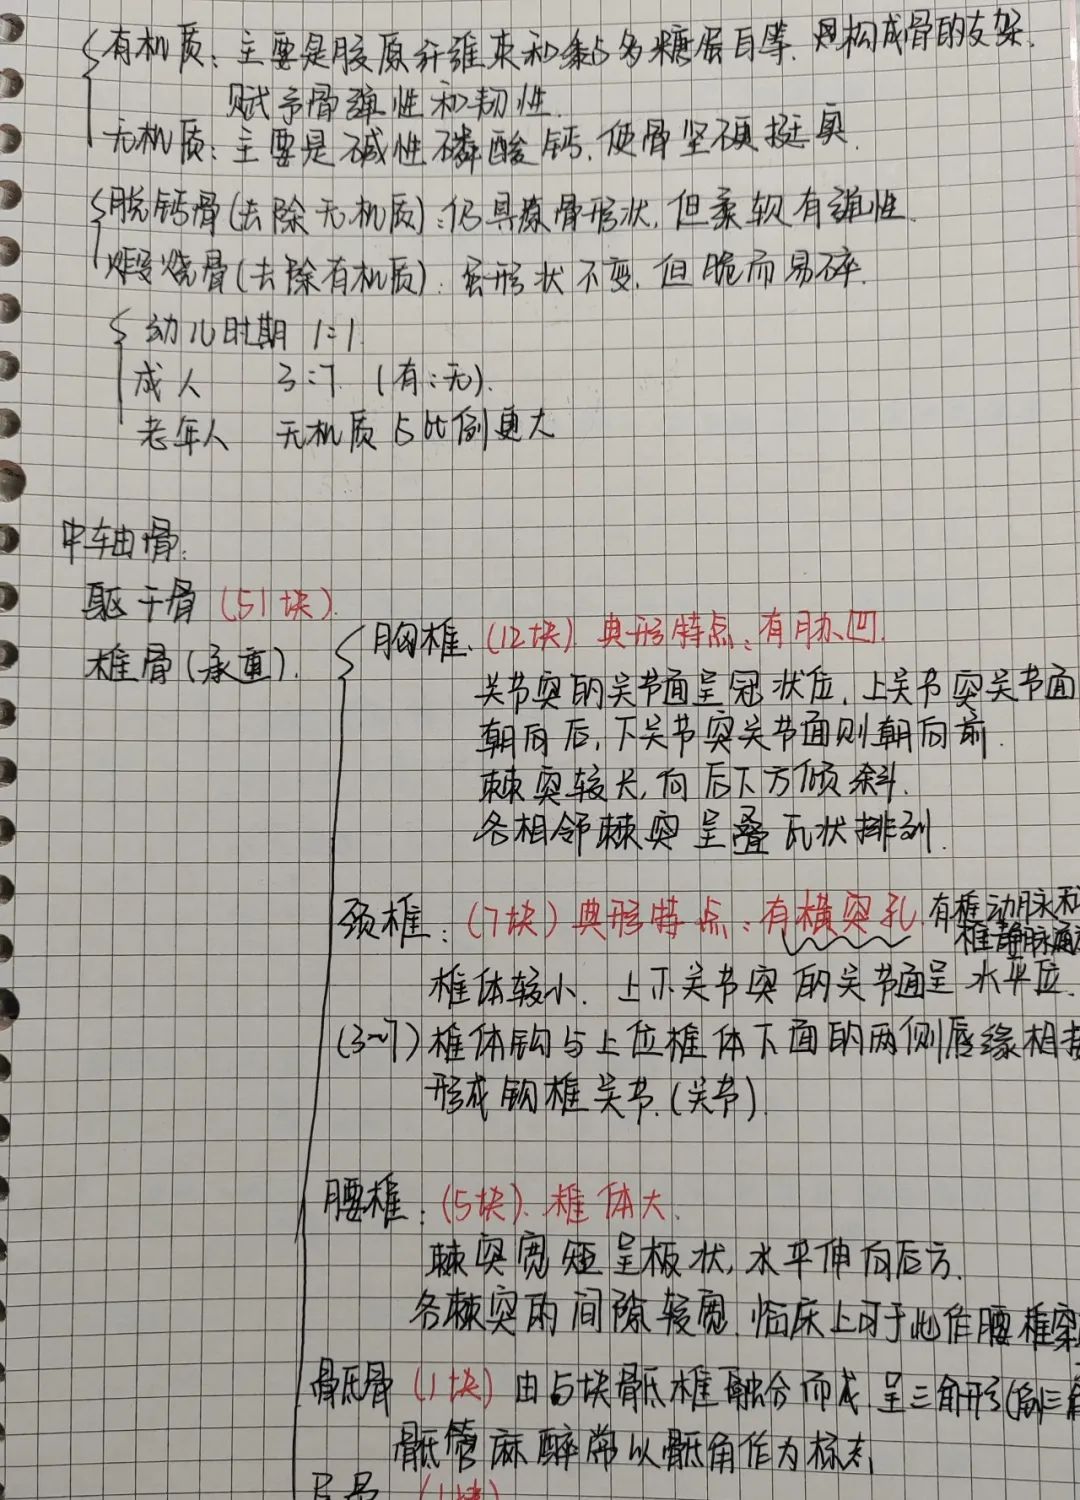 有机质：主要是胶原纤维束和黏多糖蛋白等.构成骨的支架.
赋予骨弹性和韧性.
无机质：主要是碱性磷酸钙.使骨坚硬挺实.
脱钙骨(去除无机质)：仍具原骨形状,但柔软有弹性.
煅烧骨(去除有机质)：虽形状不变.但脆而易碎.
幼儿时期 1:1
成人 3:7. (有:无).
老年人 无机质占比例更大
中轴骨：
躯干骨(51块).
椎骨(承重).
胸椎.(12块).典形特点：有肋凹.
关节突的关节面呈冠状位.上关节突关节面
朝向后,下关节突关节面则朝向前.
棘突较长,向后下方倾斜.
各相邻棘突呈叠瓦状排列.
颈椎：(7块)典形特点：有横突孔.有椎动脉和
椎静脉通
椎体较小.上下关节突的关节面呈水平位.
(3~7)椎体钩与上位椎体下面的两侧唇缘相接
形成钩椎关节.(关节).
腰椎：(5块).椎体大.
棘突宽短呈板状,水平伸向后方.
各棘突的间隙较宽.临床上可于此作腰椎穿
骶骨(1块)由5块骶椎融合而成.呈三角形(倒三角
骶管麻醉常以骶角作为标志
(1块)